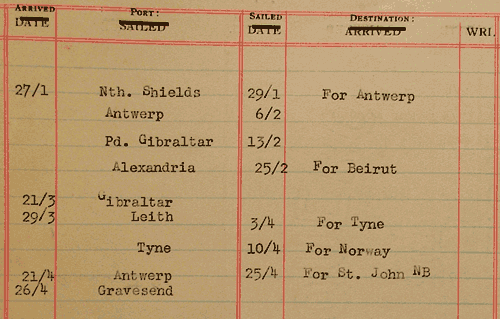 ARRIVED PORT: SAILED DESTINATION:
DATE SAILED DATE ARRIVED WRI.
27/1 Nth. Shields 29/1 For Antwerp
Antwerp 6/2
Pd. Gibraltar 13/2
Alexandria 25/2 For Beirut
21/3 Gibraltar
29/3 Leith 3/4 For Tyne
Tyne 10/4 For Norway
21/4 Antwerp 25/4 For St. John NB
26/4 Gravesend